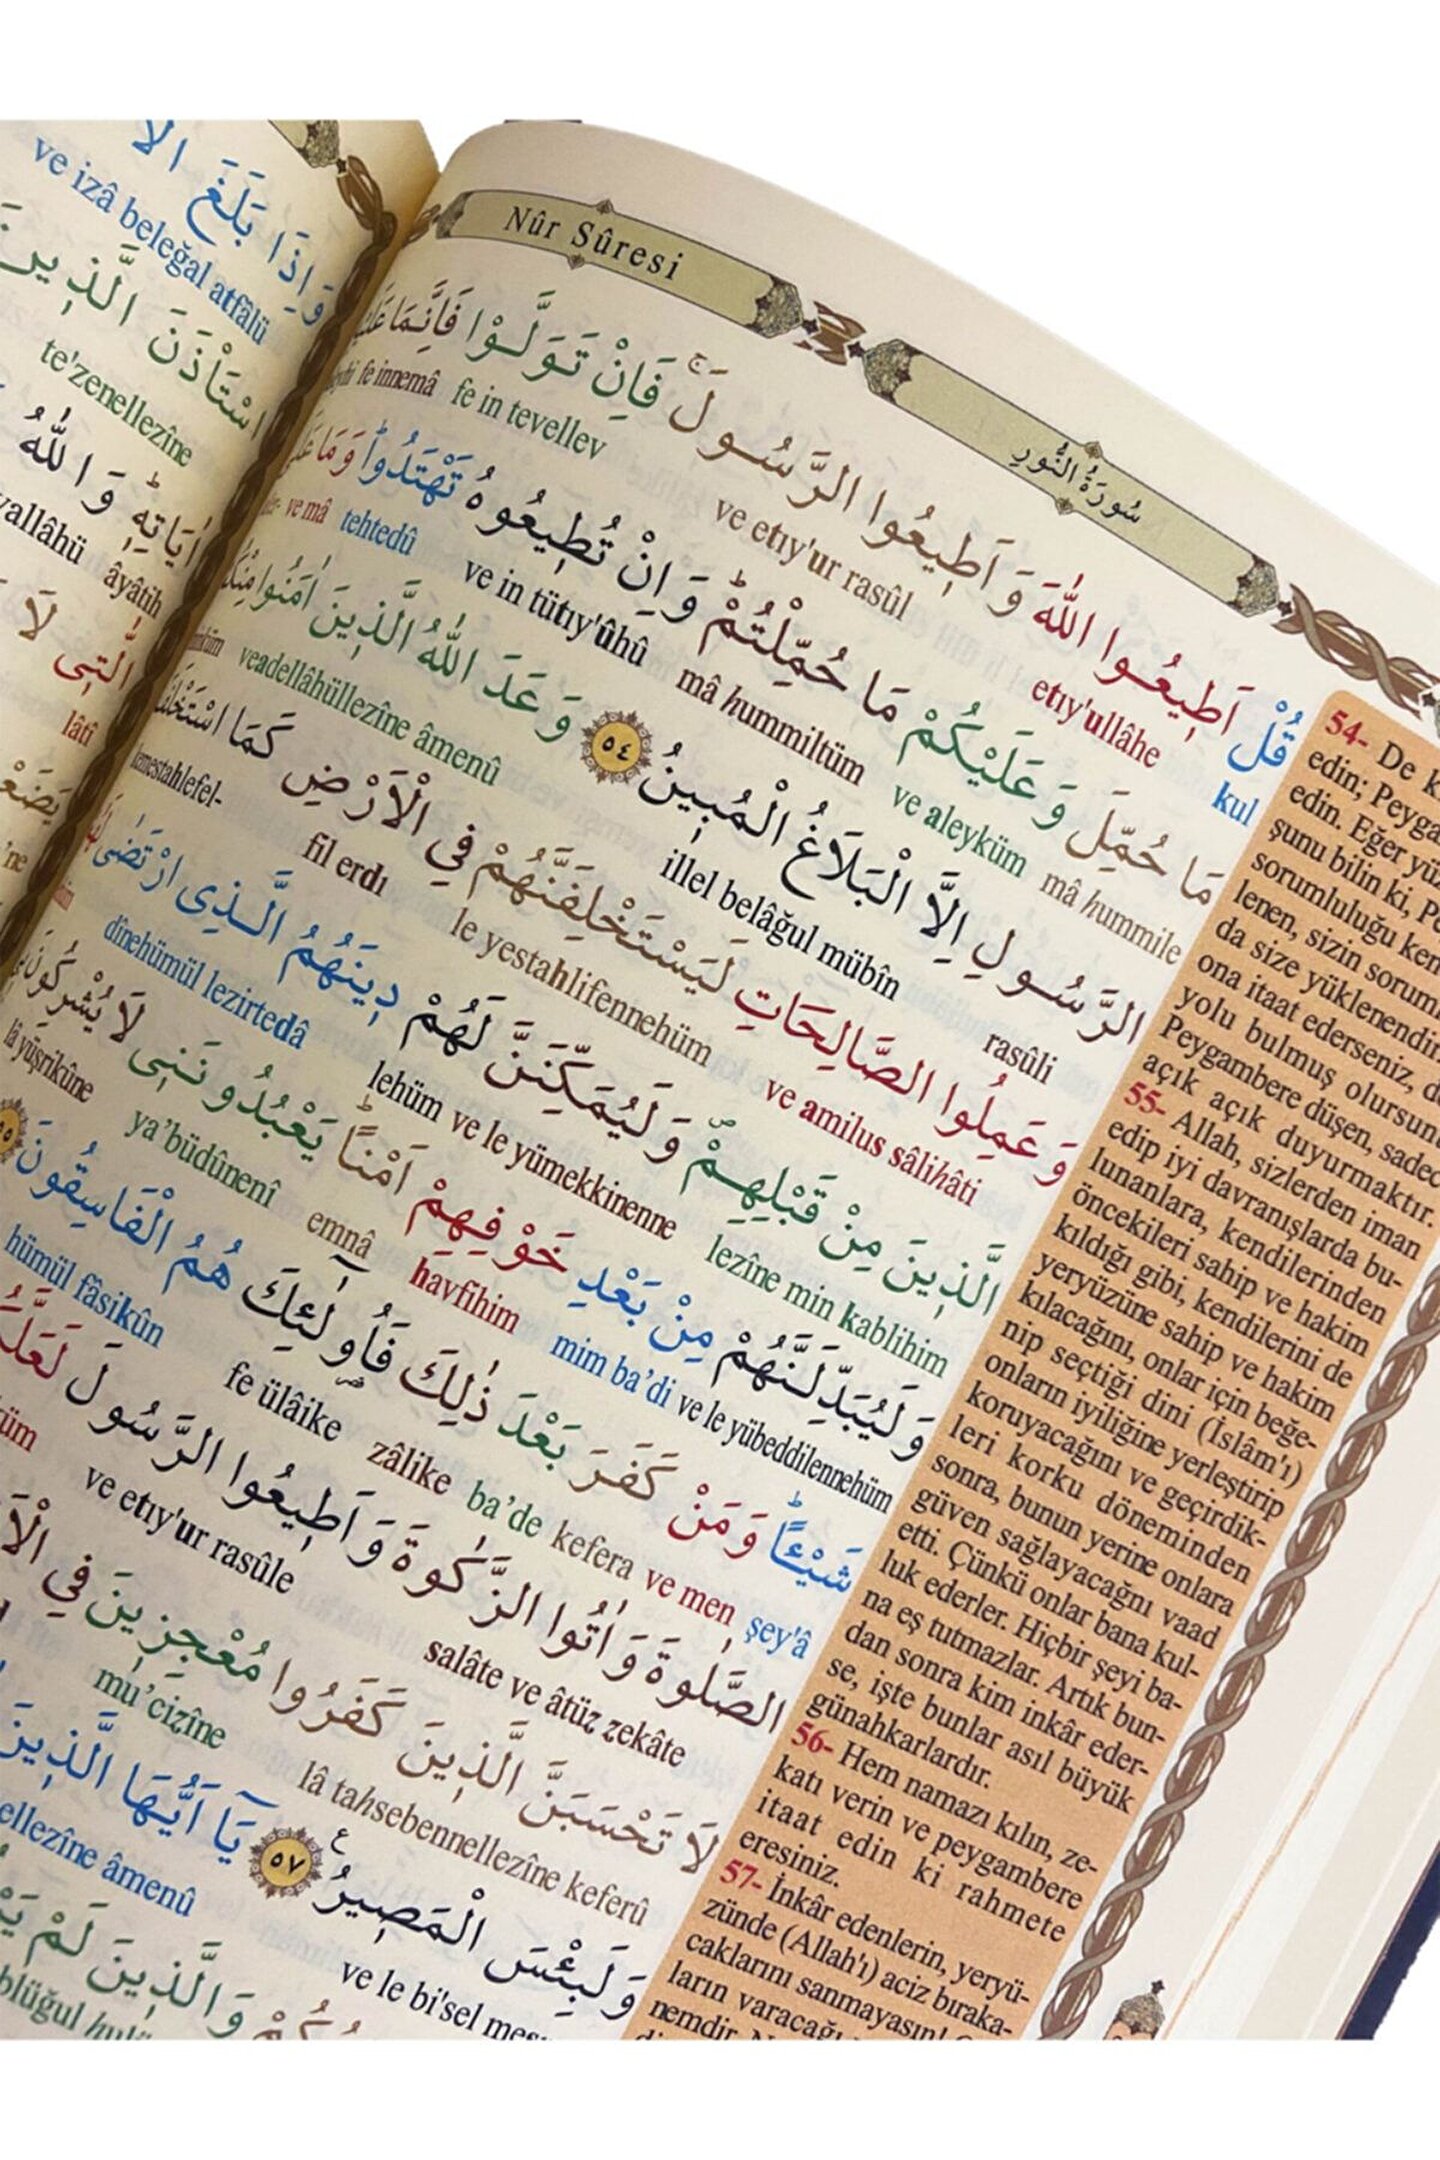 وَاِذَا بَلَغَ
ve izâ beleğal atfâlü
اسْتَأْذَنَ الَّذِينَ
te'zenellezîne
اٰيَاتِهِ وَاللّٰهُ
âyâtih
الّٰتِى لَا
lâtî
Nûr Sûresi
سُورَةُ النُّورِ
قُلْ اَطِيعُوا اللّٰهَ وَاَطِيعُوا الرَّسُولَ فَاِنْ تَوَلَّوْا فَاِنَّمَا
kul etıy'ullâhe ve etıy'ur rasûl fe in tevellev fe innemâ
مَا حُمِّلَ وَعَلَيْكُمْ مَا حُمِّلْتُمْ وَاِنْ تُطِيعُوهُ تَهْتَدُوا وَمَا
mâ hummile ve aleyküm mâ hummiltüm ve in tütıy'ûhû tehtedû ve mâ
الرَّسُولِ اِلَّا الْبَلَاغُ الْمُبِينُ ٥٤ وَعَدَ اللّٰهُ الَّذِينَ اٰمَنُوا
rasûli illel belâğul mübîn veadellâhüllezîne âmenû
وَعَمِلُوا الصَّالِحَاتِ لَيَسْتَخْلِفَنَّهُمْ فِي الْاَرْضِ كَمَا
ve amilus sâlihâti le yestahlifennehüm fil erdı
الَّذِينَ مِنْ قَبْلِهِمْ وَلَيُمَكِّنَنَّ لَهُمْ دِينَهُمُ الَّذِى ارْتَضٰى
lezîne min kablihim ve le yümekkinenne lehüm dînehümül lezirtedâ
وَلَيُبَدِّلَنَّهُمْ مِنْ بَعْدِ خَوْفِهِمْ اَمْنًا يَعْبُدُونَنِى لَا يُشْرِكُونَ
ve le yübeddilennehüm mim ba'di havfihim emnâ ya'büdûnenî lâ yüşrikûne
شَيْـًٔا وَمَنْ كَفَرَ بَعْدَ ذٰلِكَ فَاُولٰٓئِكَ هُمُ الْفَاسِقُونَ
şey'â ve men kefera ba'de zâlike fe ülâike hümül fâsikûn
الصَّلٰوةَ وَاٰتُوا الزَّكٰوةَ وَاَطِيعُوا الرَّسُولَ
salâte ve âtüz zekâte ve etıy'ur rasûle
لَا تَحْسَبَنَّ الَّذِينَ كَفَرُوا مُعْجِزِينَ فِي
lâ tahsebennellezîne keferû mu'cizîne
وَلَبِئْسَ الْمَصِيرُ ٥٧ يَا اَيُّهَا الَّذِينَ
ve le bi'sel ellezîne âmenû
وَالَّذِينَ لَمْ
54- De
edin;
edin. Eğer
şunu bilin ki,
sorumluluğu
lenen, sizin
da size
ona itaat ederseniz,
yolu bulmuş
Peygambere düşen,
açık açık duyurmaktır.
55- Allah, sizlerden iman
edip iyi davranışlarda bu-
lunanlara, kendilerinden
öncekileri sahip ve hakim
kıldığı gibi, kendilerini de
yeryüzüne sahip ve hakim
kılacağını, onlar için beğe-
nip seçtiği dini (İslâm'ı)
onların iyiliğine yerleştirip
koruyacağını ve geçirdik-
leri korku döneminden
sonra, bunun yerine onlara
güven sağlayacağını vaad
etti. Çünkü onlar bana kul-
luk ederler. Hiçbir şeyi ba-
na eş tutmazlar. Artık bun-
dan sonra kim inkâr eder-
se, işte bunlar asıl büyük
günahkarlardır.
56- Hem namazı kılın, ze-
katı verin ve peygambere
itaat edin ki rahmete
eresiniz.
57- İnkâr edenlerin, yeryü-
zünde (Allah'ı) aciz bıraka-
caklarını sanmayasın!
ların varacağı
nemdir.